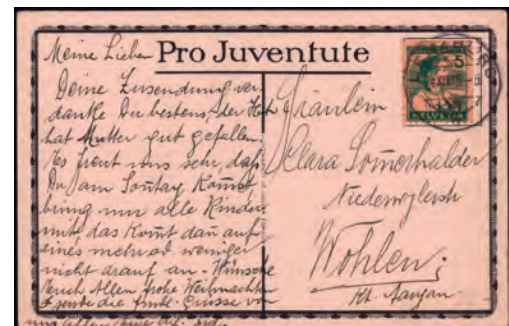 Pro Juventute
Meine Lieben
Deine Zusendung ver
danke Dir bestens, der
hat Mutter gut gefallen.
Es freut uns sehr, daß
Du am Sontag Komst
bring nur alle Kinder
mit, das Komt dan auf
eines mehr od weniger
nicht drauf an. - Wünsche
Euch Allen frohe Weihnachten
& sende die Grüsse von
uns Allen
Fräulein
Clara Somerhalder
Wohlen.
Kt. Aargau.
5
HELVETIA